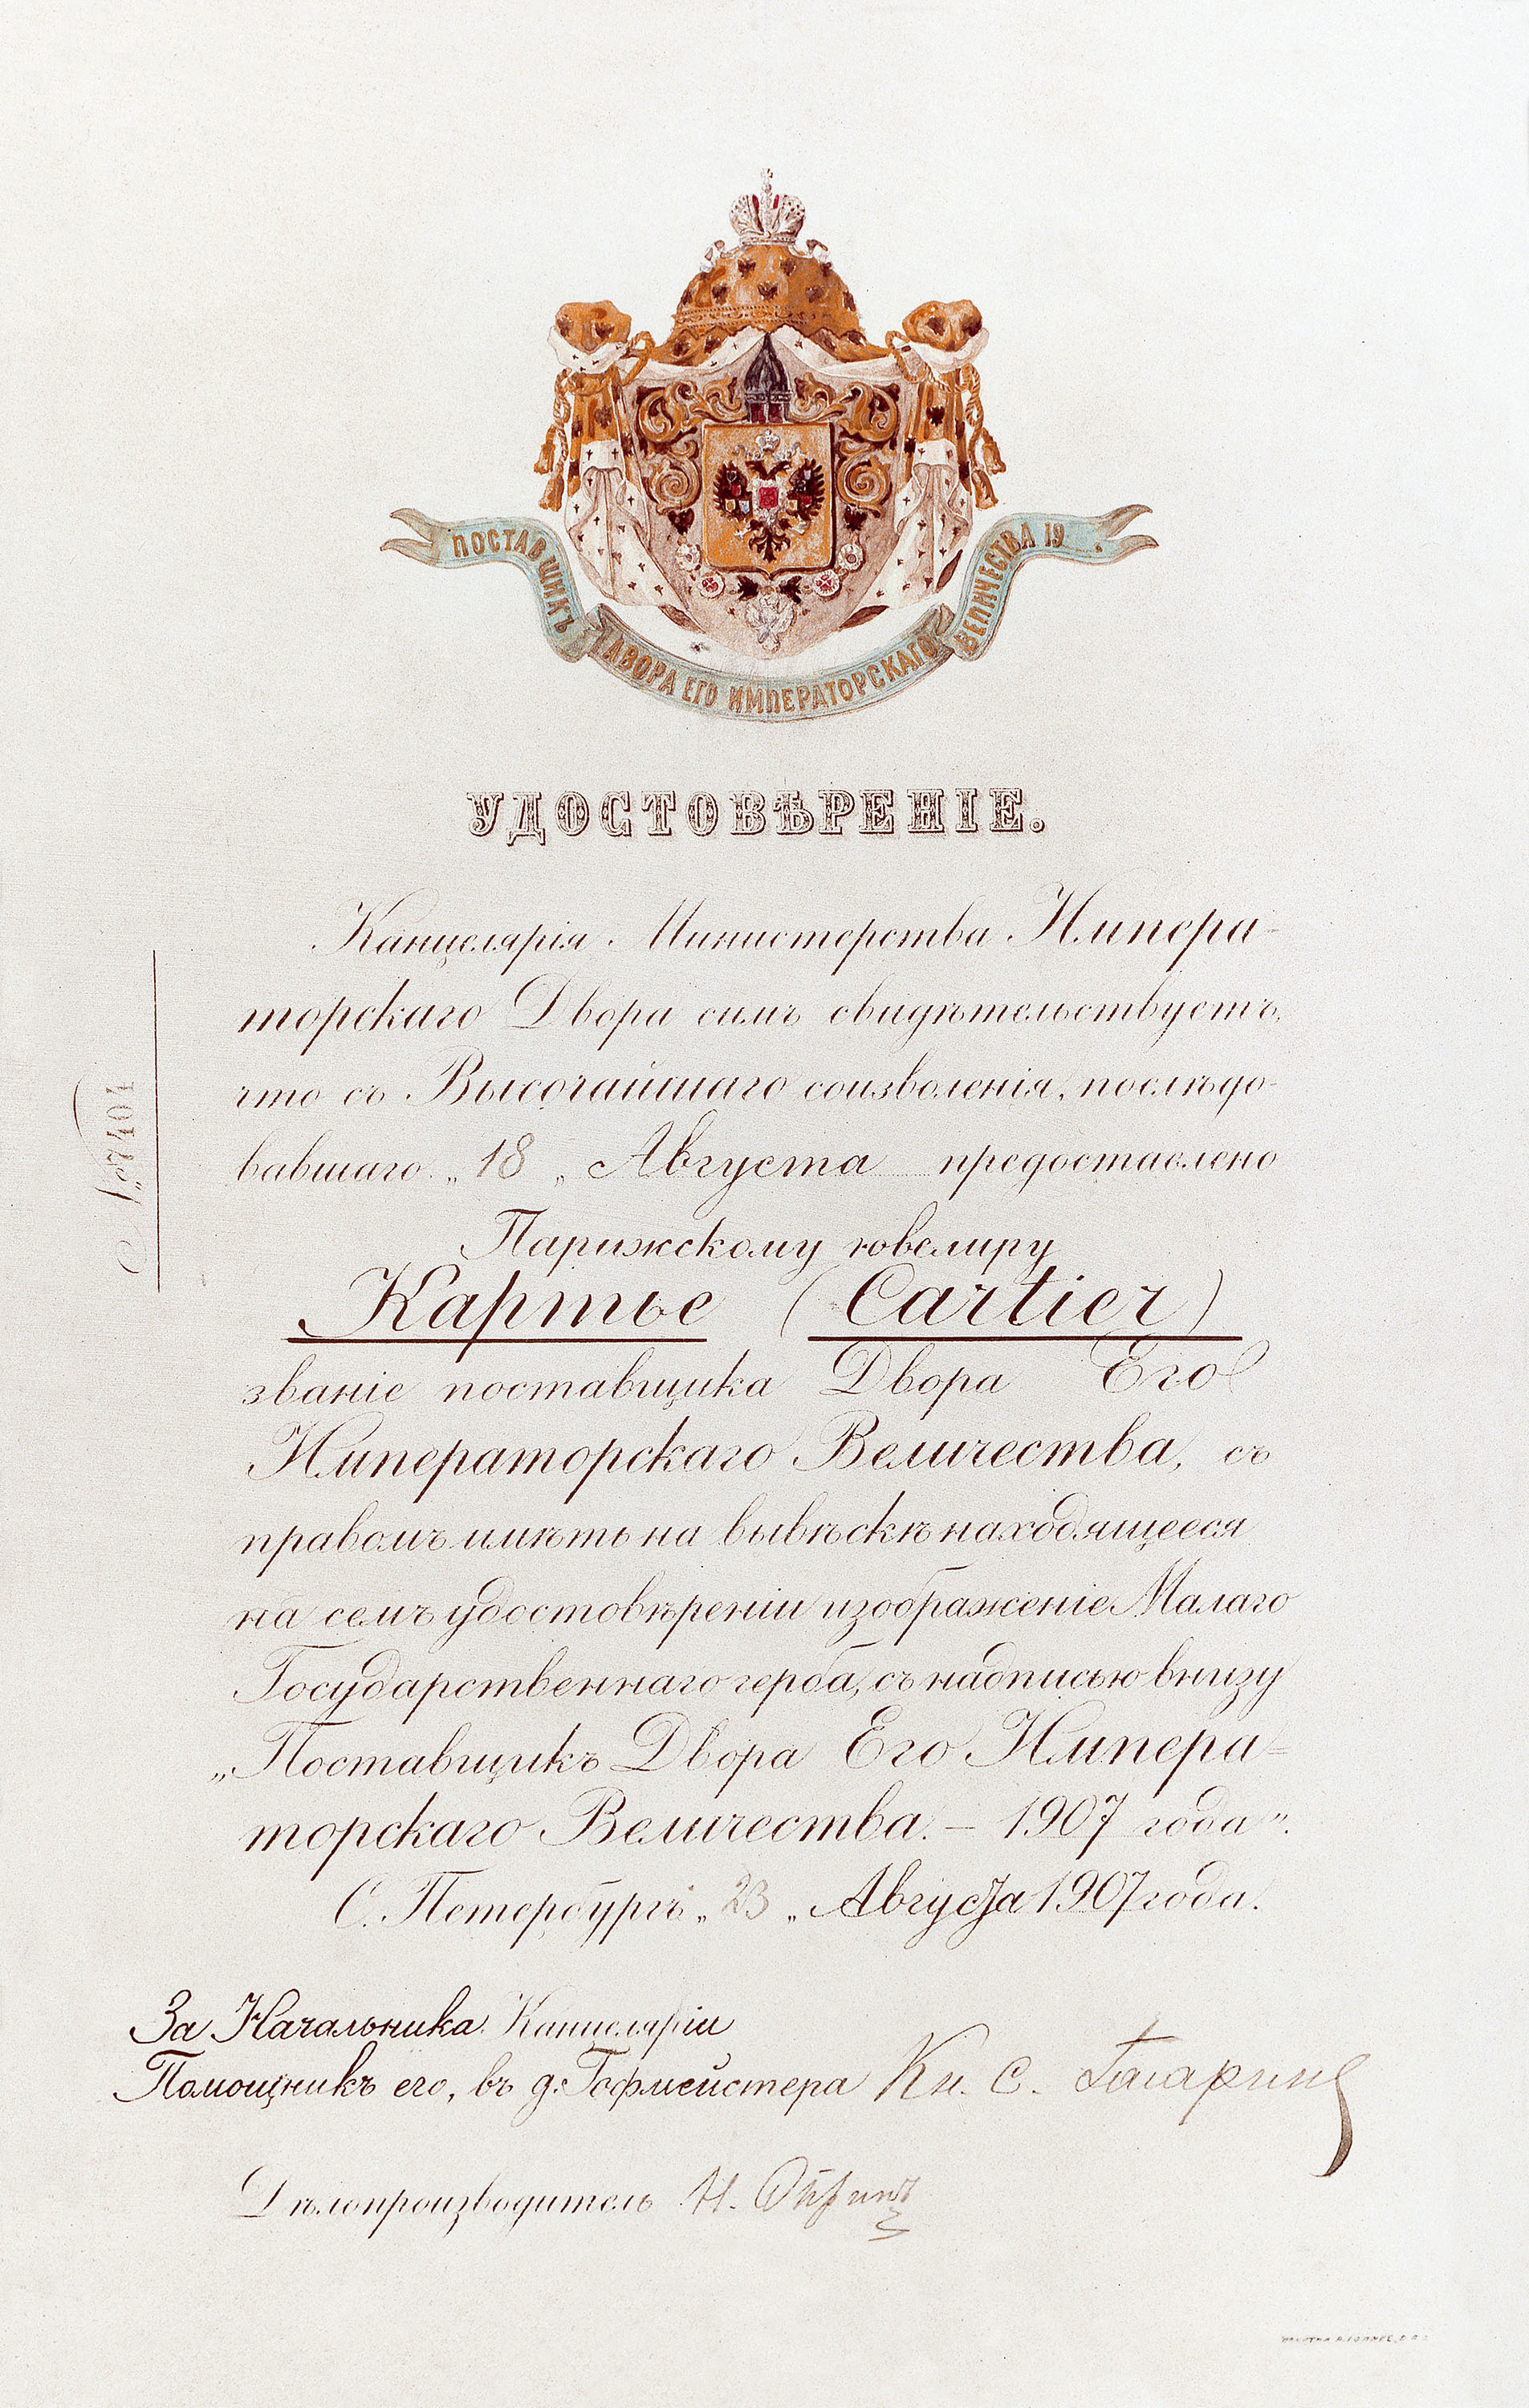 ПОСТАВЩИКЪ ДВОРА ЕГО ИМПЕРАТОРСКАГО ВЕЛИЧЕСТВА 19
УДОСТОВѢРЕНІЕ.
Канцелярія Министерства Импера-
торскаго Двора симъ свидѣтельствуетъ,
что съ Высочайшаго соизволенія, послѣдо-
вавшаго „18„ Августа предоставлено
Парижскому ювелиру
Картье (Cartier)
званіе поставщика Двора Его
Императорскаго Величества, съ
правомъ имѣть на вывѣскѣ находящееся
на семъ удостовѣреніи изображеніе Малаго
Государственнаго герба, съ надписью внизу
„Поставщикъ Двора Его Импера=
торскаго Величества. – 1907 года".
С. Петербургъ „23„ Августа 1907 года.
За Начальника Канцеляріи
Помощникъ его, въ д. Гофмейстера Кн. С. Гагаринъ
Дѣлопроизводитель Н.
№ 7401